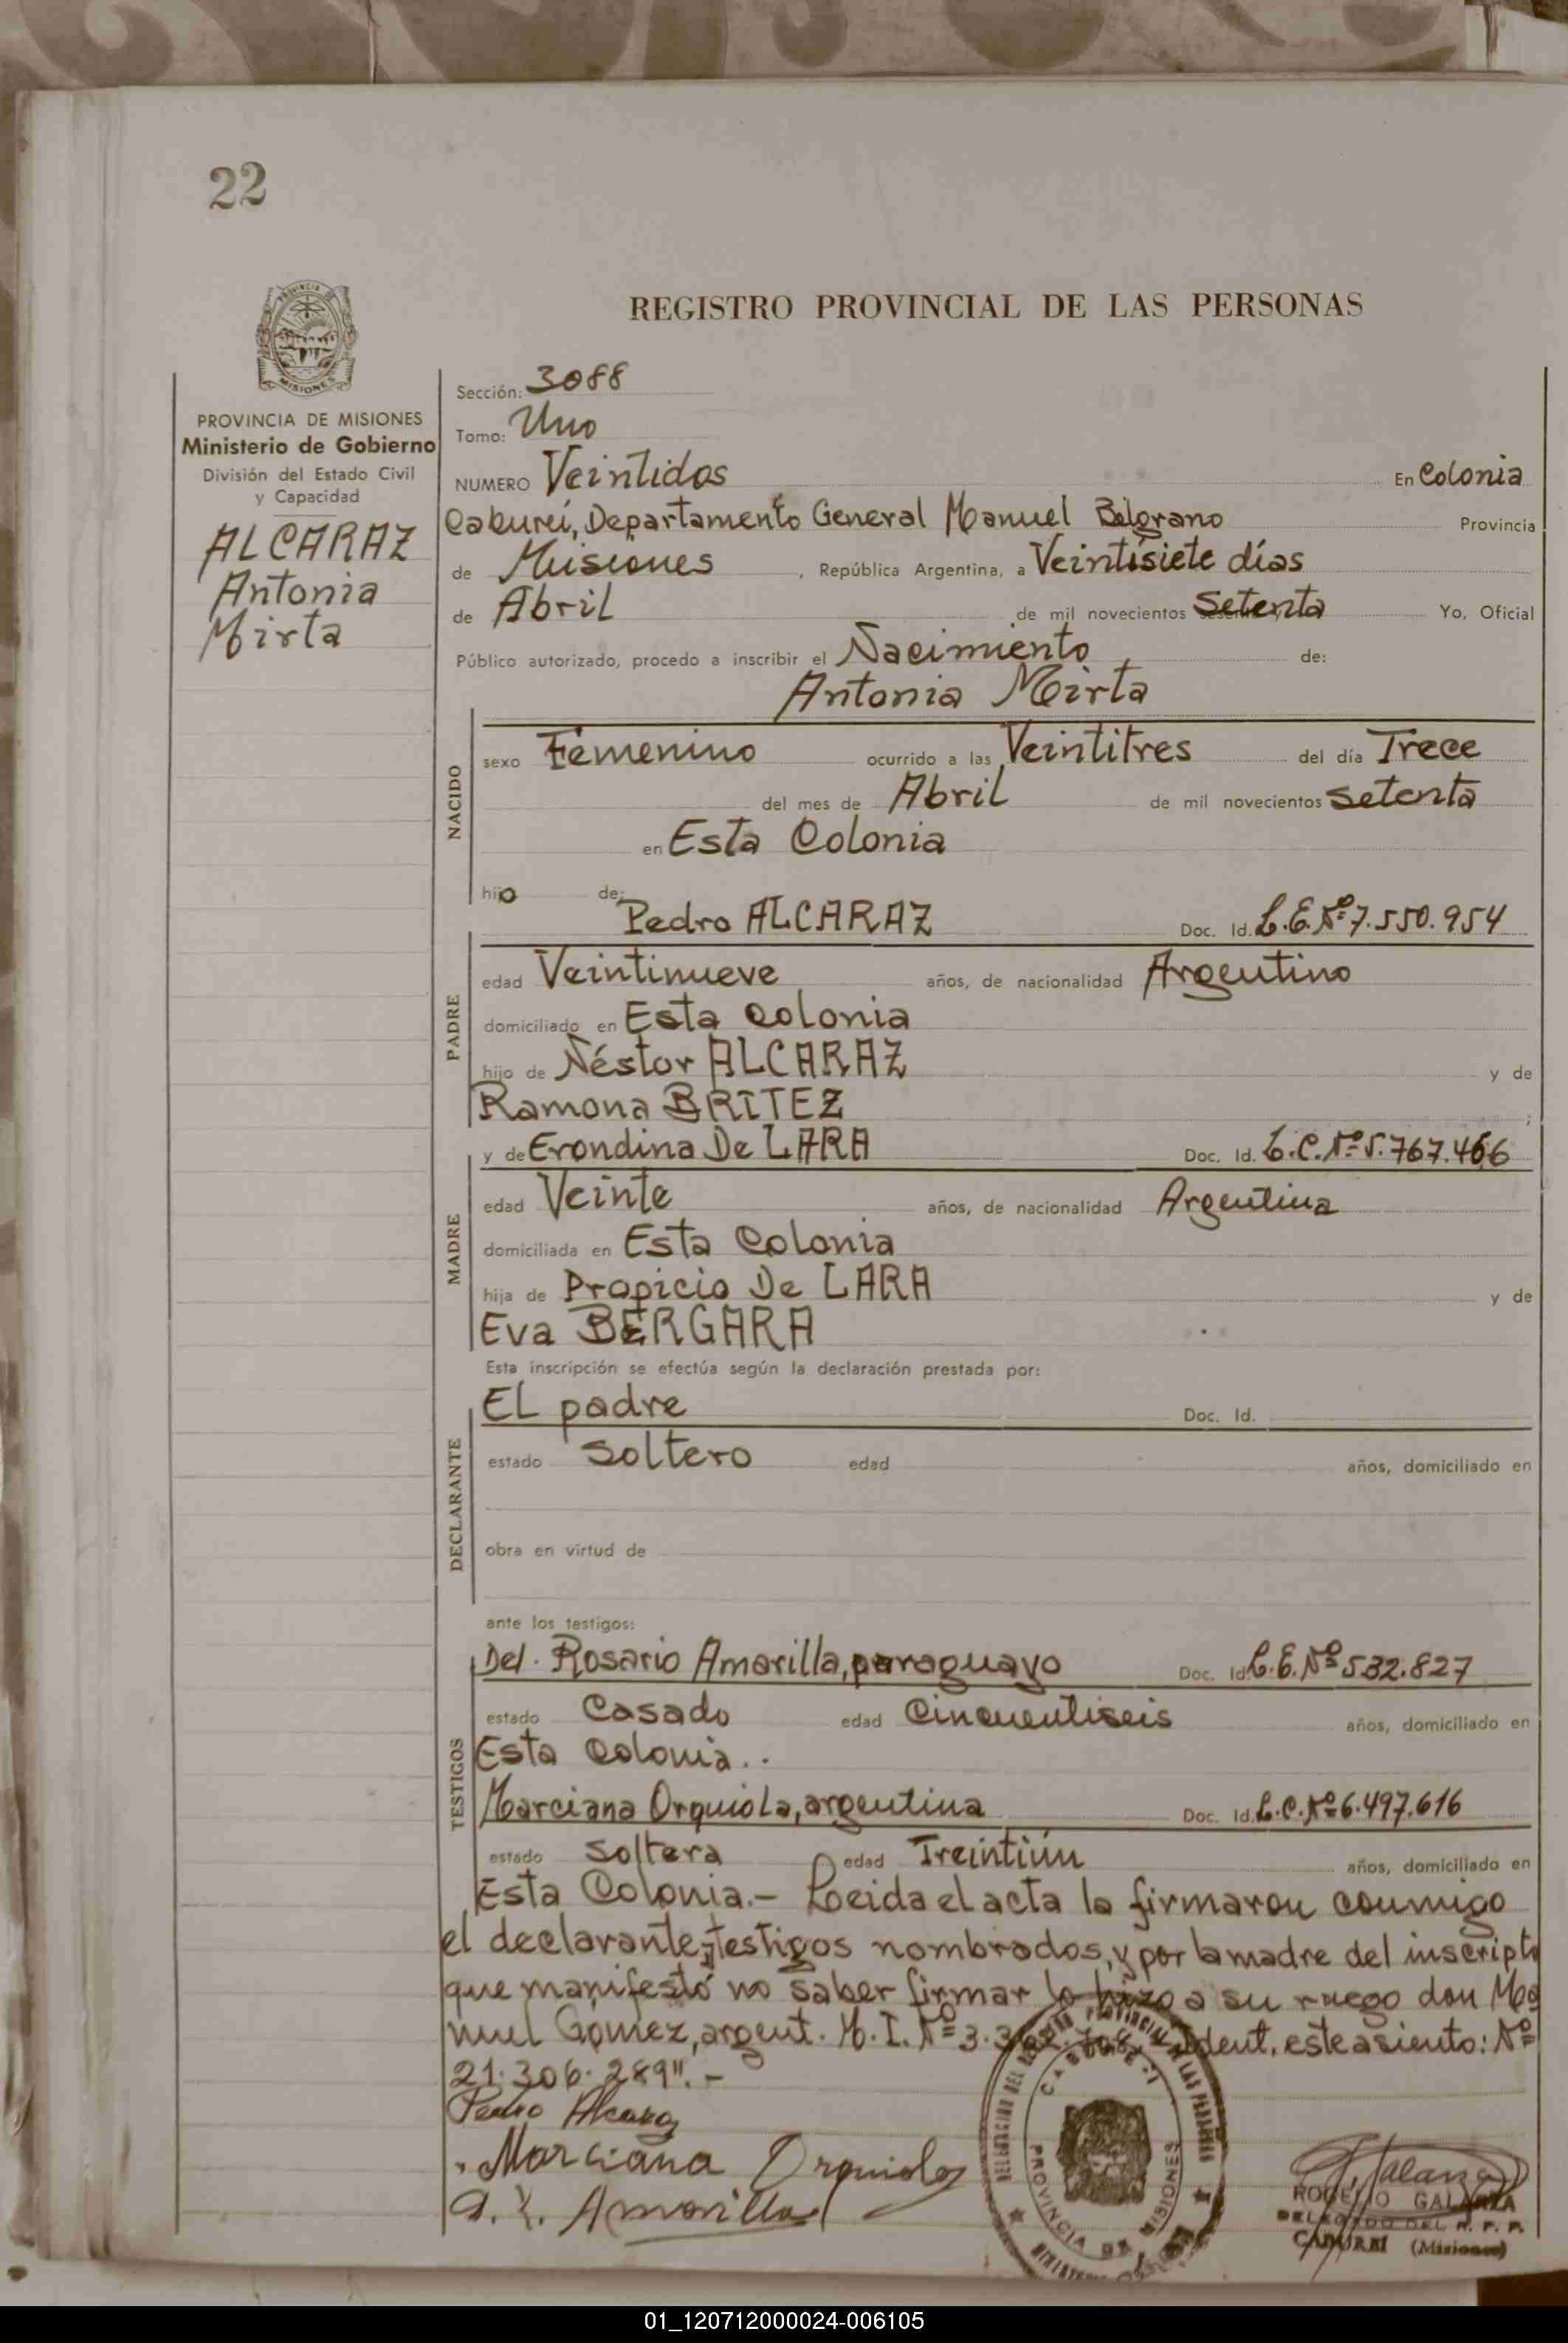 22
REGISTRO PROVINCIAL DE LAS PERSONAS
PROVINCIA DE MISIONES
Ministerio de Gobierno
División del Estado Civil
y Capacidad
ALCARAZ
Antonia
Mirta
Sección: 3088
Tomo: Uno
NUMERO Veintidos En Colonia
Caburei, Departamento General Manuel Belgrano Provincia
de Misiones, República Argentina, a Veintisiete días
de Abril de mil novecientos Setenta Yo, Oficial
Público autorizado, procedo a inscribir el Nacimiento de:
Antonia Mirta
NACIDO
sexo Femenino ocurrido a las Veintitres del día Trece
del mes de Abril de mil novecientos setenta
en Esta Colonia
hijo de:
Pedro ALCARAZ Doc. Id. L.E.Nº7.550.954
PADRE
edad Veintinueve años, de nacionalidad Argentino
domiciliado en Esta Colonia
hijo de Néstor ALCARAZ y de
Ramona BRITEZ ;
y de Erondina De LARA Doc. Id. L.C.Nº5.767.466
MADRE
edad Veinte años, de nacionalidad Argentina
domiciliada en Esta Colonia
hija de Propicio De LARA y de
Eva BERGARA
Esta inscripción se efectúa según la declaración prestada por:
EL padre Doc. Id.
DECLARANTE
estado Soltero edad años, domiciliado en
obra en virtud de
ante los testigos:
Del. Rosario Amarilla, paraguayo Doc. Id. L.E.Nº532.827
TESTIGOS
estado Casado edad Cincuentiseis años, domiciliado en
Esta Colonia..
Marciana Orquiola, argentina Doc. Id. L.C.Nº6.497.616
estado Soltera edad Treintiún años, domiciliado en
Esta Colonia.- Leida el acta la firmaron conmigo
el declarante, y testigos nombrados, y por la madre del inscripto
que manifestó no saber firmar lo hizo a su ruego don Ma
nuel Gomez, argent. M.I.Nº3. Ident. este asiento: Nº
21.306.289".-
Pedro Alcaraz
Marciana Orquiola
A. Amarilla
CABUREI
PROVINCIA DE MISIONES
ROGELIO GALARZA
DELEGADO DEL R. P. P.
CABUREI (Misiones)
01_120712000024-006105